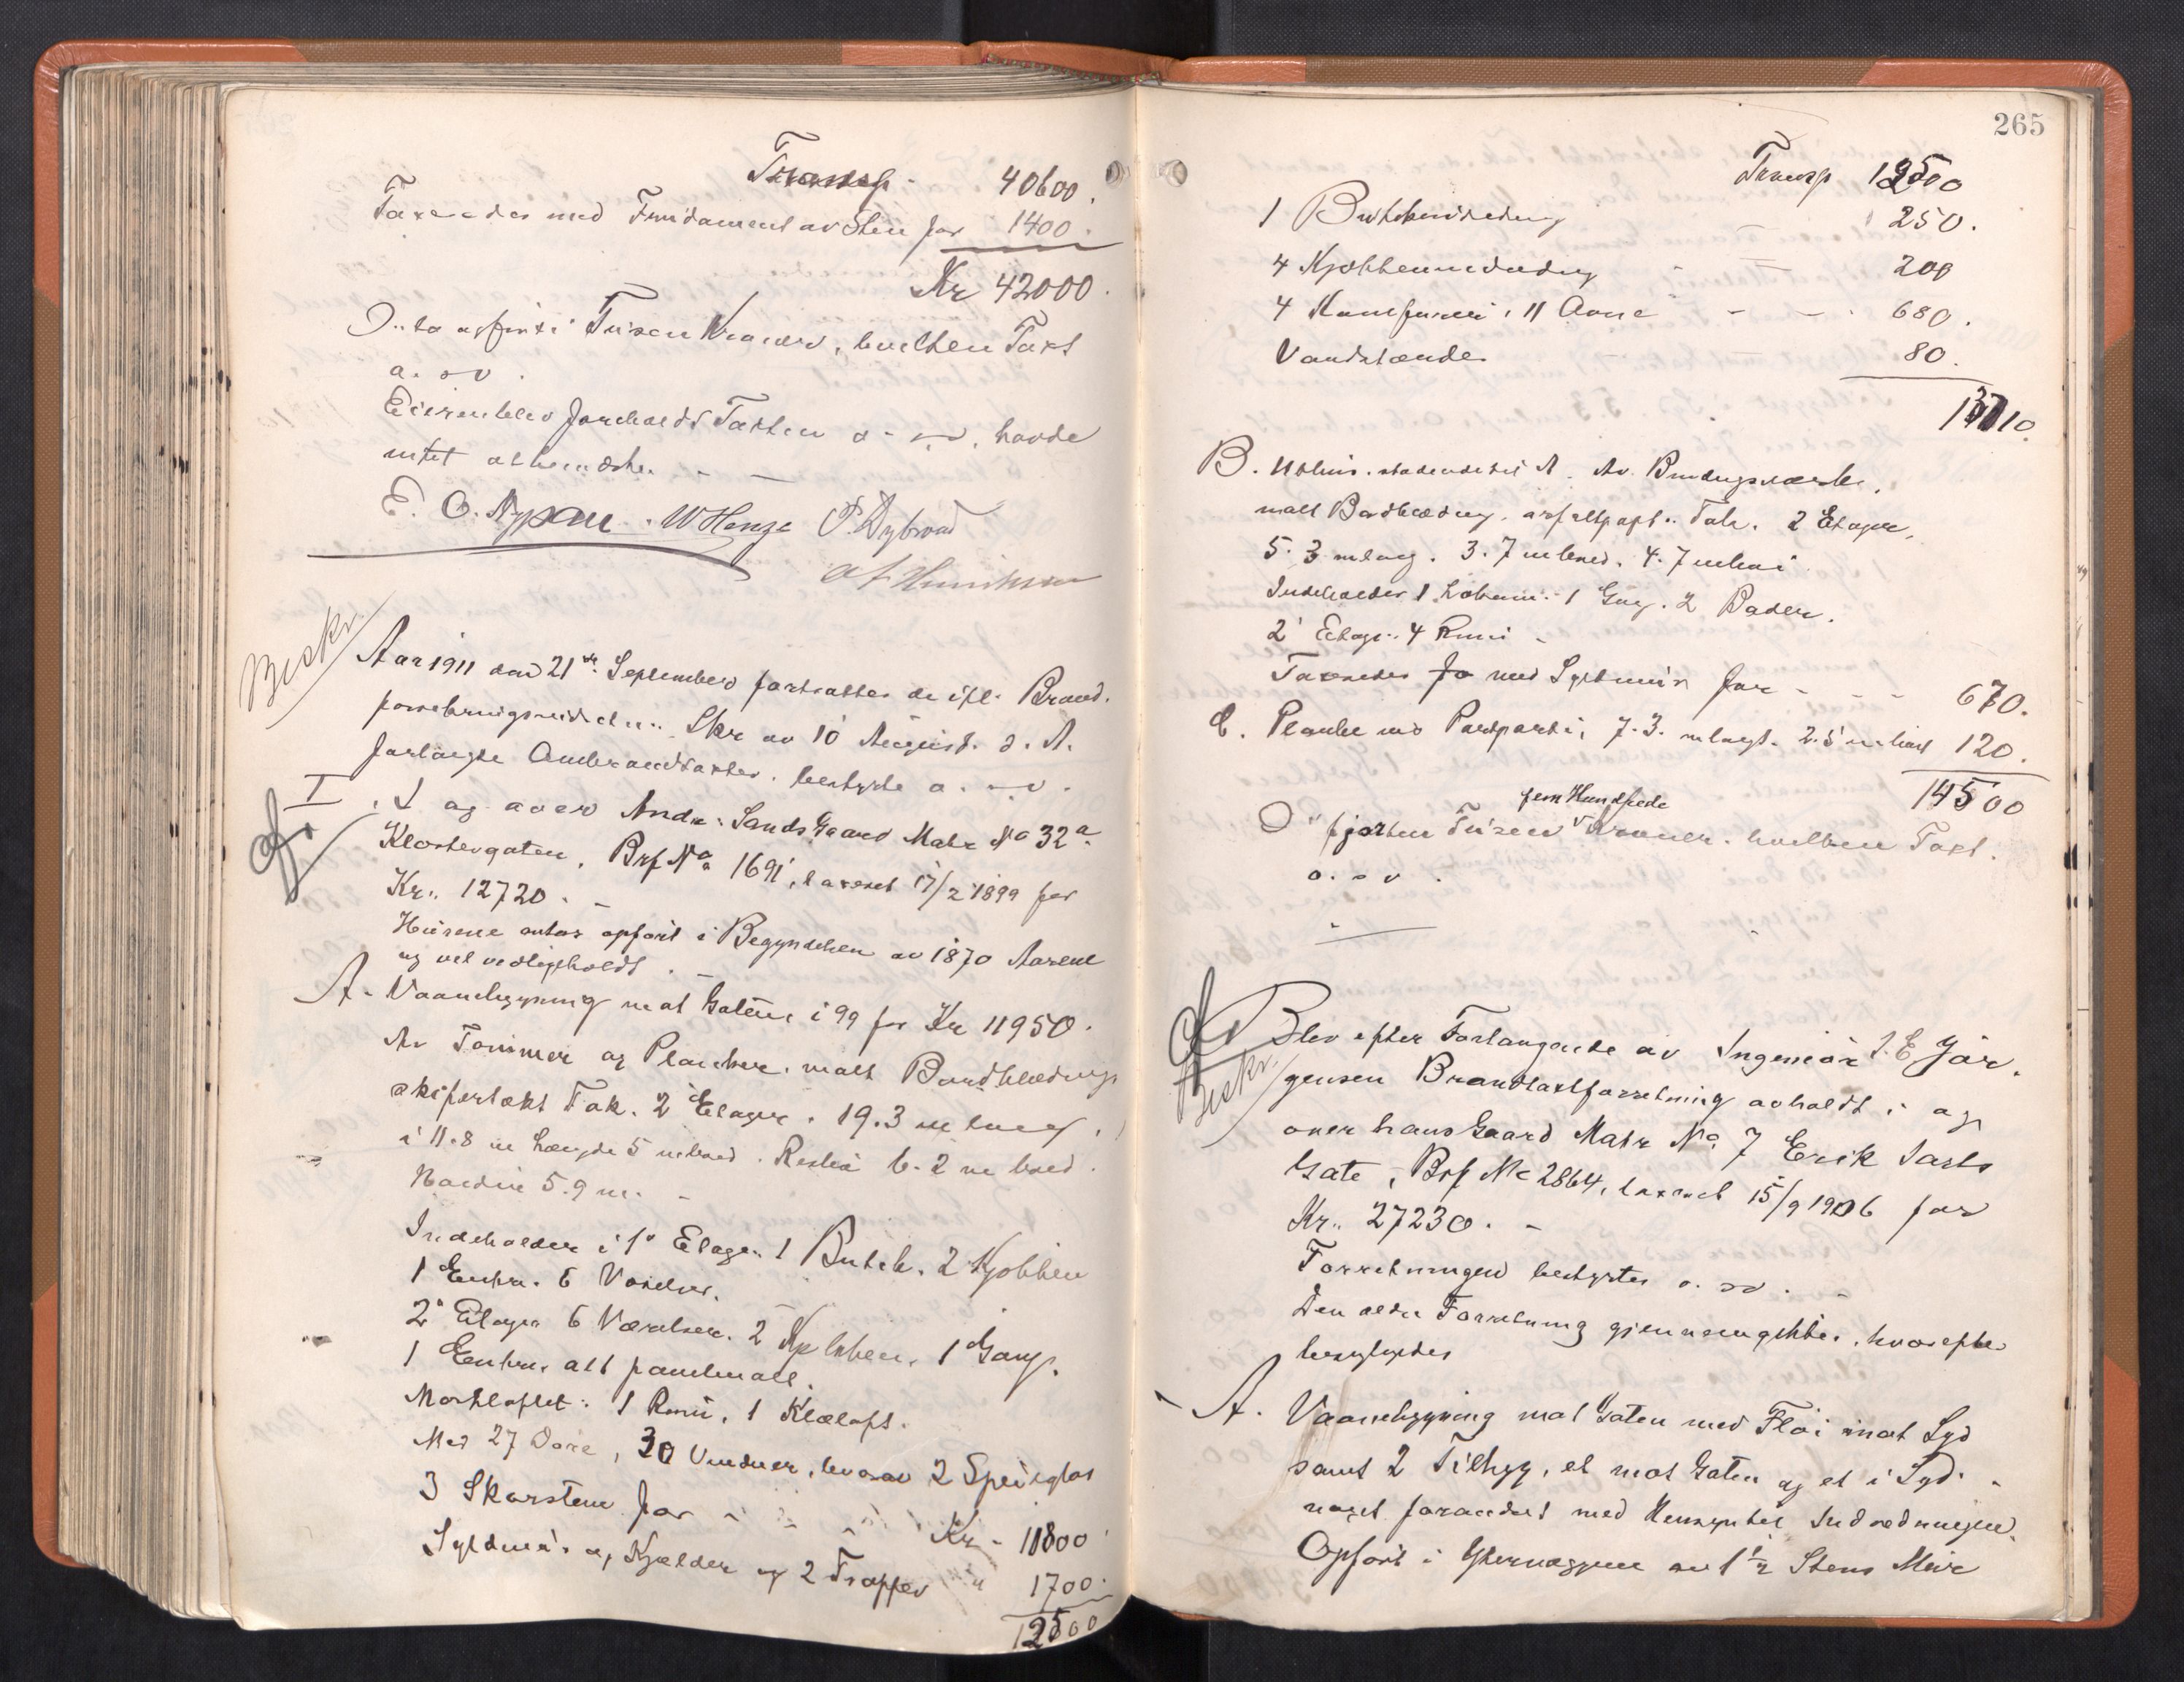 Transp. 40600.
Taxeredes med Fundament av Sten for 1400.
Kr 42000.
toogfirti Tusen Kroner, hvilken Takst
a. s v.
Eieren blev foreholdt Taksten o. s. v. havde
intet at bemærke. - -
E. O. Nypan. W Henze P. Dybwad
Beskr.
Aar 1911 den 21de September fortsattes de ifl. Brand-
forsikringsindretn. Skr av 10 August d. A.
forlangte Ombrandtakster, bestyrte o. s. v.
I. I og over Andr. Sands Gaard Matr No 32a
Klostergaten, Brf No 1691, taxeret 17/2 1899 for
Kr. 12720. -
Husene antas opført i Begyndelsen av 1870 Aarene
og vel vedligeholdt. -
A. Vaanebygning mot Gaten i 99 for Kr 11950.
Av Tømmer og Planker, malt Bordklædning
skifertækt Tak. 2 Etager. 19.3 m lang,
i 11.8 m Længde 5 m bred. Resten 6.2 m bred.
Høiden 5.9 m. -
Indeholder i 1' Etage 1 Butik, 2 Kjøkken
1 Entre. 6 Værelser.
2' Etage 6 Værelser. 2 Kjøkken, 1 Gang.
1 Entre, alt panelmalt.
Mørkloftet: 1 Rum, 1 Klæloft.
Med 27 Døre, 30 Vinduer, hvorav 2 Speilglas
3 Skorstene for - - - Kr. 11800
Syldmur og Kjælder og 2 Trapper " 1700.
12500
265
Transp 12500
1 Butikindredning 250.
4 Kjøkkenindredning - - 200
4 Kamfurer i 11 Ovne - - 680.
Vandstænder 80.
13710.
B. Uthus. stødende til A. Av Bindingsverk,
malt Bordklædning, asfaltpapt. Tak. 2 Etager,
5.3 m lang. 3.7 m bred. 4.7 m høi
Indeholder 1 Lokum. 1 Gang. 2 Boder.
2' Etage. 4 Rum -
Taxeredes fo med Syldmur for - - - 670.
C. Planke med Portparti, 7.3. m langt. 2.5 m høit 120.
14500
fem Hundrede
fjorten Tusen v Kroner. hvilken Takst.
o. s v.
Beskr.
Blev efter Forlangende av Ingeniør J. E Jør-
gensen Brandtakstforretning avholdt i og
over hans Gaard Matr No 7 Erik Jarls
Gate, Brf No 2864, taxeret 15/9 1906 for
Kr. 27230. -
Forretningen bestyrtes o. s v. -
Den ældre Forretning gjennemgikkes, hvorefter
besigtigedes
A. Vaanebygning mot Gaten med Fløi mot Syd
samt 2 Tilbyg, et mot Gaten og et i Syd.
noget forandret med Hensyn til Indredningen.
Opført i Ydervæggene av 1 1/2 Stens Mur